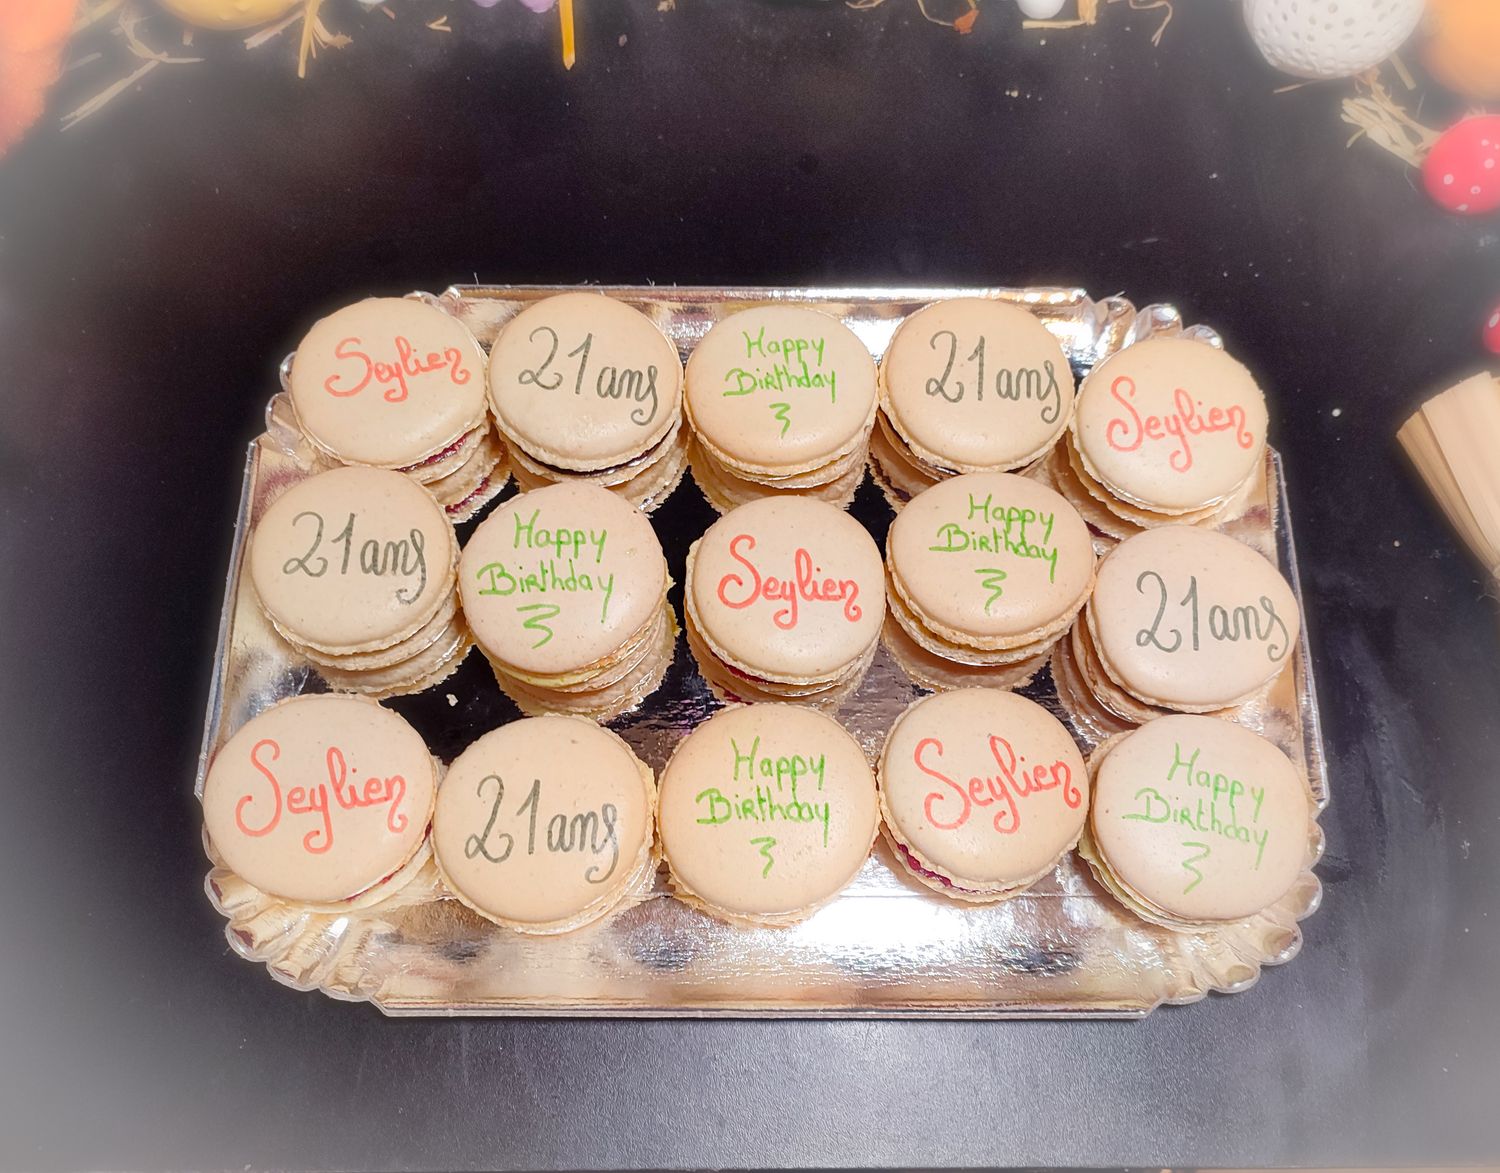 Seylien
21 ans
Happy
Birthday
21 ans
Seylien
21 ans
Happy
Birthday
Seylien
Happy
Birthday
21 ans
Seylien
21 ans
Happy
Birthday
Seylien
Happy
Birthday